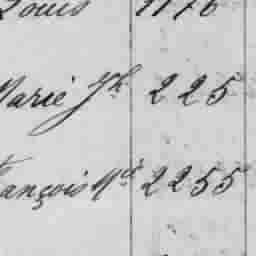 Louis 1176
Marie Jh 225
François Md 2255